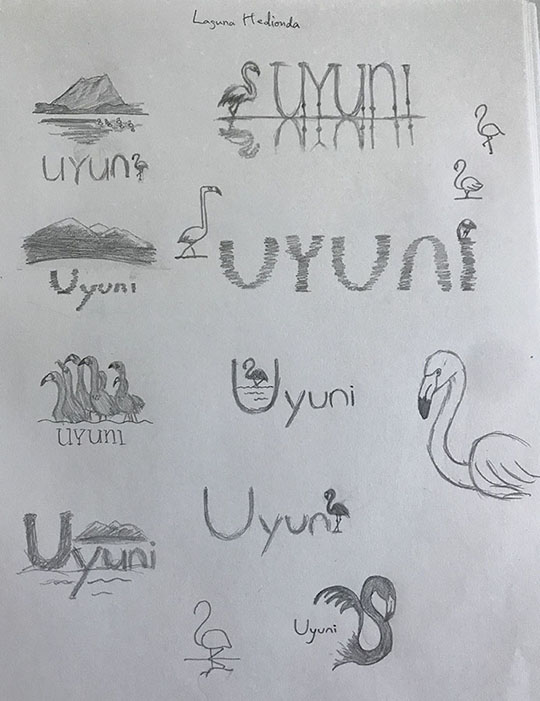 Laguna Hedionda
UYUNI
UYUNI
UYUNI
Uyuni
Uyuni
UYUNI
Uyuni
Uyuni
Uyuni